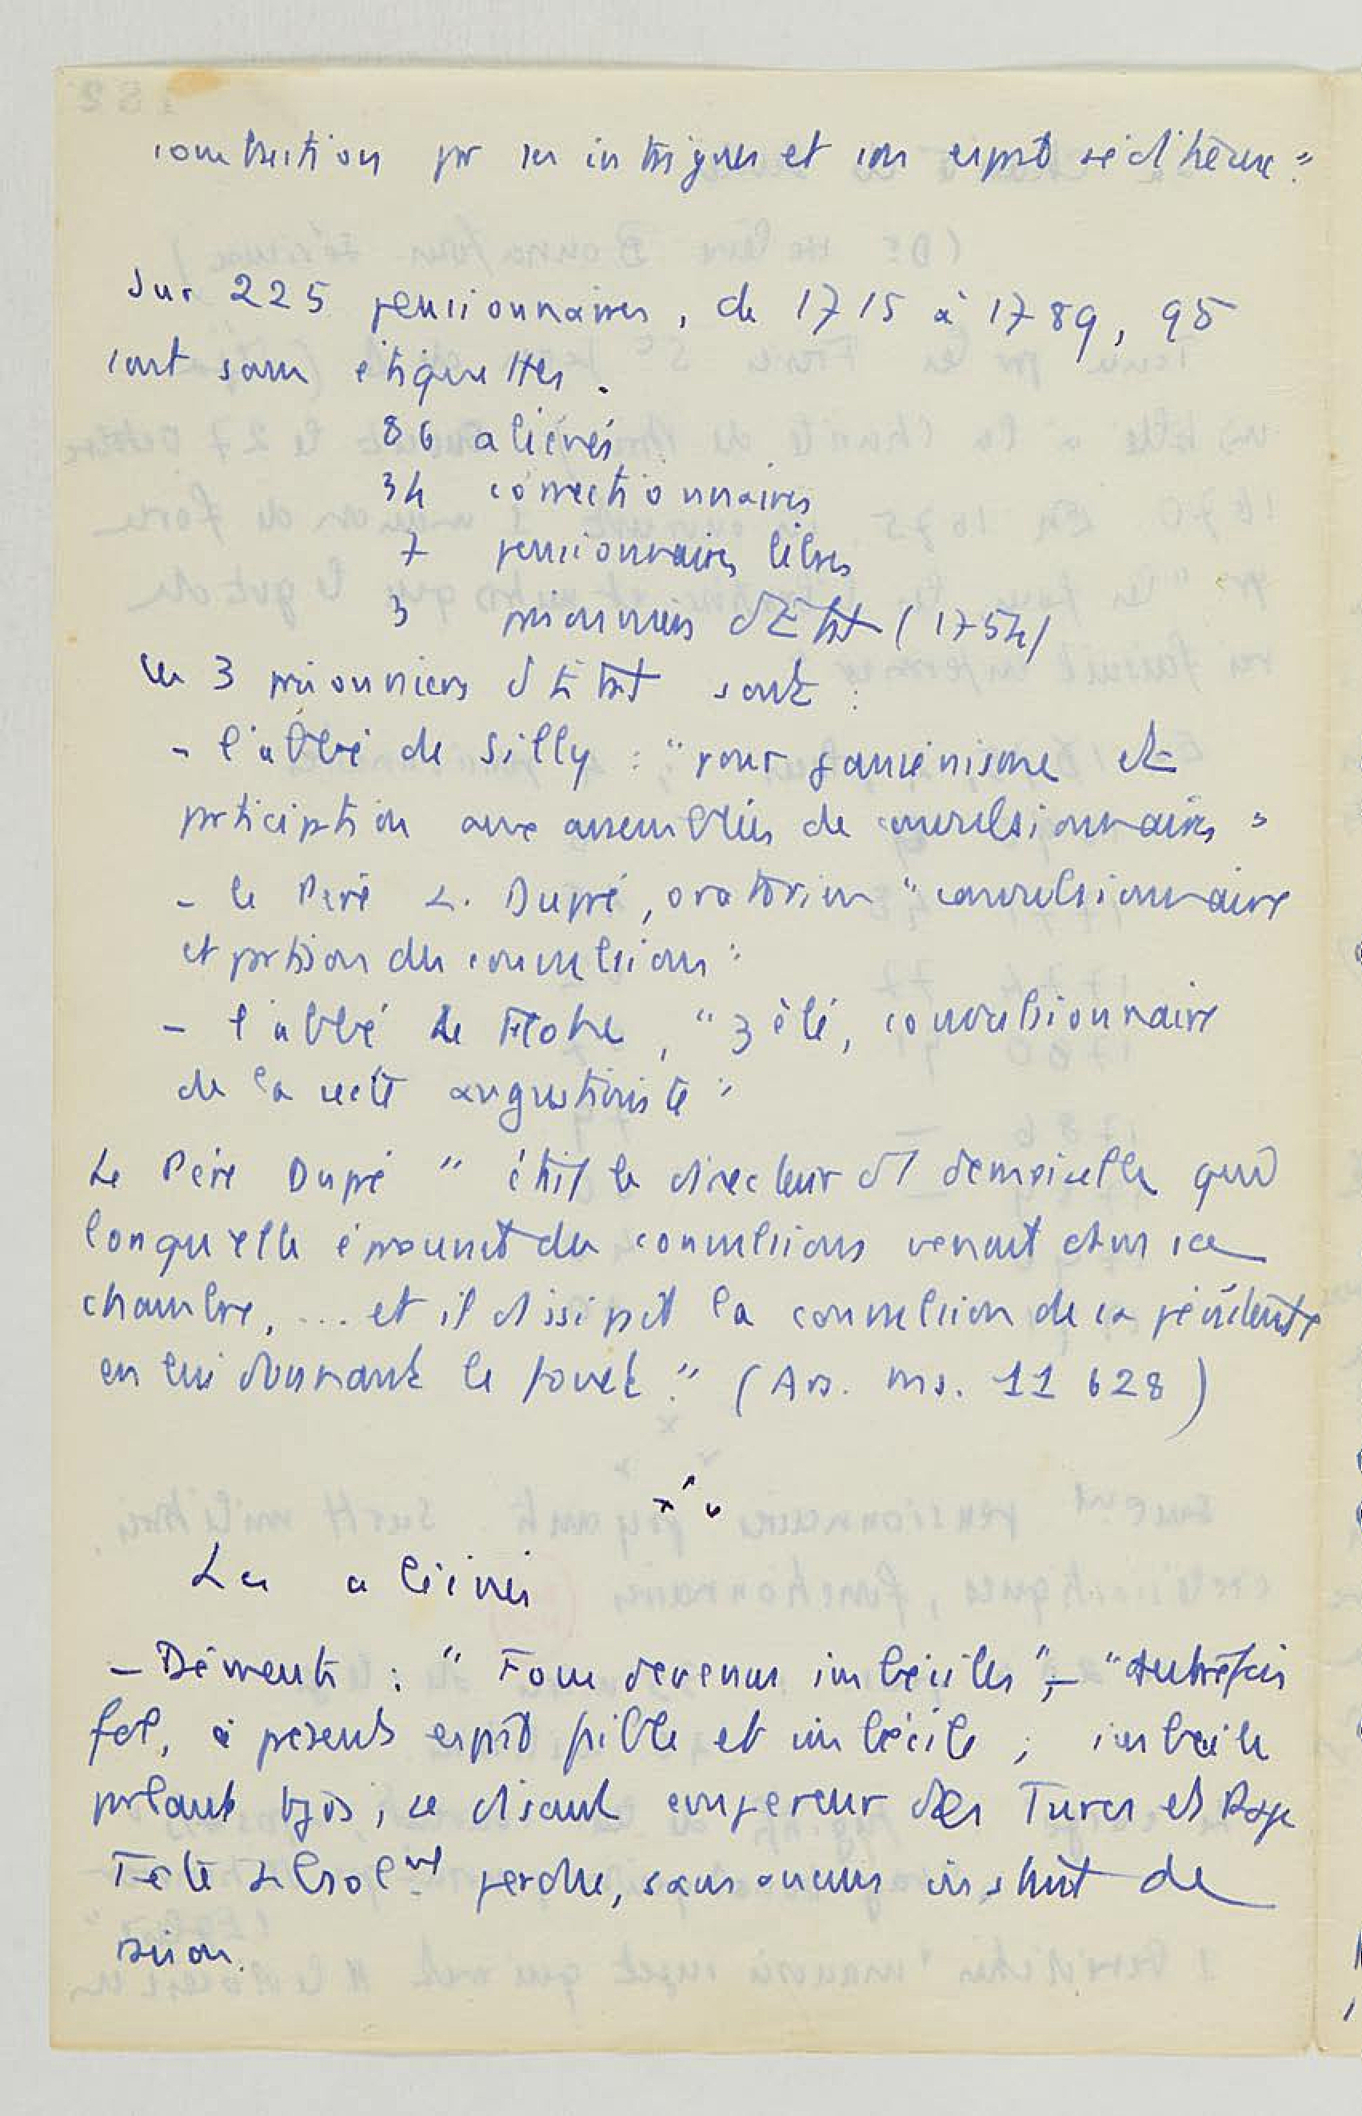 construction par ses intrigues et son esprit séditieux."
Sur 225 pensionnaires, de 1715 à 1789, 95
sont sans étiquettes.
86 aliénés
34 correctionnaires
7 pensionnaires libres
3 prisonniers d'Etat (1754)
les 3 prisonniers d'Etat sont :
- l'abbé de Silly : "pour jansénisme et
participation aux assemblées de convulsionnaires"
- le Père L. Dupré, oratorien "convulsionnaire
et partisan des convulsions"
- l'abbé de , "zélé, convulsionnaire
de la secte augustiniste"
Le Père Dupré "était le directeur d'1 demoiselle qui
lorsqu'elle éprouvait des convulsions venait dans sa
chambre, ... et il dissipait la convulsion de sa pénitente
en lui donnant le fouet." (Ars. ms. 11 628)
Les aliénés
- Déments : "Fous devenus imbéciles", - "Autrefois
fol, à présent esprit faible et imbécile ; imbécile
parlant tjrs, se disant empereur des Turcs et Pape
Tête absol.nt perdue, sans aucun instant de
raison.